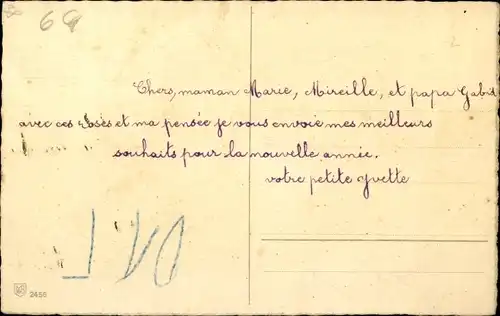 69
Chers, maman Maree, Mireille, et papa Gabit
avec ces roses et ma pensée je vous envoie mes meilleurs
souhaits pour la nouvelle année.
votre petite Yvette
2456